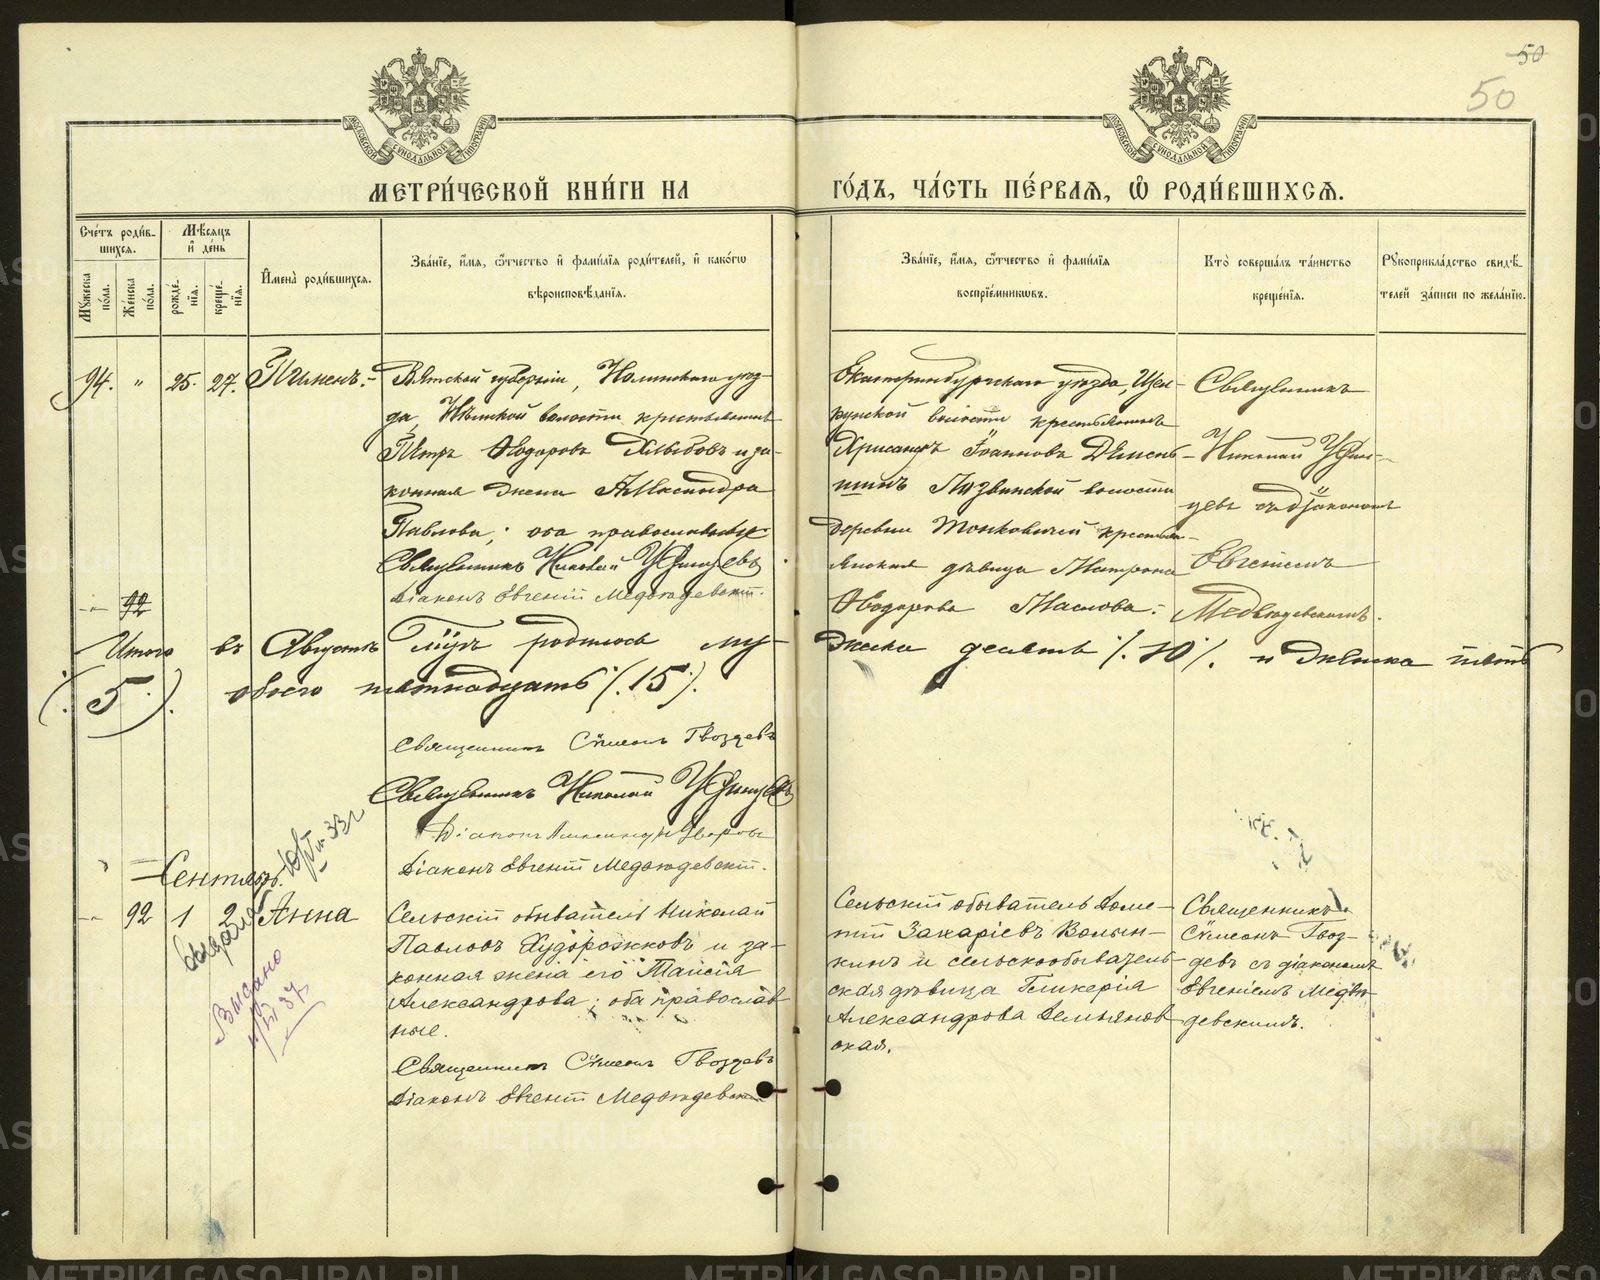 50
50
МОСКОВСКОЙ СѴНОДАЛЬНОЙ ТИПОГРАФІИ
МОСКОВСКОЙ СѴНОДАЛЬНОЙ ТИПОГРАФІИ
МЕТРИ́ЧЕСКОЙ КНИ́ГИ НА
ГО́ДЪ, ЧА́СТЬ ПЕ́РВАѦ, Ѡ҆ РОДИ́ВШИХСѦ.
Сче́тъ роди́в-
шихся.
Мѣ́сяцъ
и҆ де́нь
Мꙋ́жеска
по́ла.
Же́нска
по́ла.
рожде́-
нїя.
креще́-
нїя.
И҆мена̀ роди́вшихся.
Зва́нїе, и҆́мя, ѻ҆́тчество и҆ фами́лїя роди́телей, и҆ како́гѡ
вѣроисповѣ́данїя.
Зва́нїе, и҆́мя, ѻ҆́тчество и҆ фами́лїя
воспрїе́мниковъ.
Кто̀ соверша́лъ та́инство
креще́нїя.
Рꙋкоприкла́дство свидѣ́-
телей за́писи по жела́нїю.
94. " 25. 27. Пименъ.-
Вятской губерніи, Нолинскаго уѣз-
да, волости крестьянинъ
Петръ Ѳеодоровъ и за-
конная жена Александра
Павлова; оба православные
Священникъ Николай
Діаконъ Евгеній Медвѣдевскій.
Екатеринбургскаго уѣзда,
волости крестьянинъ
Хрисанфъ Іоанновъ Демень-
шинъ волости
деревни крестья-
нская дѣвица Матрона
Ѳеодорова Маслова.
Священникъ
Николай
съ діакономъ
Евгеніемъ
Медвѣдевскимъ.
-"- 92
Итого въ Августѣ родилось му-
жеска десять /.10/. и женска пять
(.5.). обоего пятнадцать (.15.).
Священникъ Сѵмеонъ Гвоздевъ
Священникъ Николай
Діаконъ Александръ
Діаконъ Евгеній Медвѣдевскій.
Сентябрь.
-"- 92 1 2 Анна
Выдано
37
33 г
Сельскій обыватель Николай
Павловъ Худорожковъ и за-
конная жена его Таисія
Александрова; оба православ
ные.
Священникъ Сѵмеонъ Гвоздевъ
Діаконъ Евгеній Медвѣдевскій
Сельскій обыватель Доме-
тій Захаріевъ Волын-
кинъ и сельскообыватель-
ская дѣвица Гликерія
Александрова Демьянов
ская.
Священникъ
Сѵмеонъ Гвоз-
девъ съ діакономъ
Евгеніемъ Медвѣ
девскимъ.
METRIKI.GASO-URAL.RU